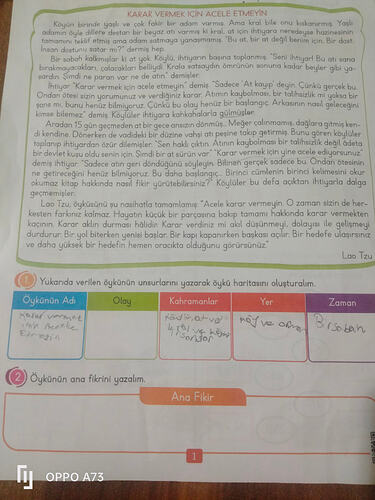 KARAR VERMEK İÇİN ACELE ETMEYİN
Köyün birinde yaşlı ve çok fakir bir adam varmış. Ama kral bile onu kıskanırmış. Yaşlı
adamın öyle dillere destan bir beyaz atı varmış ki kral, at için ihtiyara neredeyse hazinesinin
tamamını teklif etmiş ama adam satmaya yanaşmamış. "Bu at, bir at değil benim için. Bir dost.
İnsan dostunu satar mı?" dermiş hep.
Bir sabah kalkmışlar ki at yok. Köylü, ihtiyarın başına toplanmış. "Seni ihtiyar! Bu atı sana
bırakmayacakları, çalacakları belliydi. Krala satsaydın ömrünün sonuna kadar beyler gibi ya-
şardın. Şimdi ne paran var ne de atın." demişler.
İhtiyar: "Karar vermek için acele etmeyin" demiş. "Sadece 'At kayıp' deyin. Çünkü gerçek bu.
Ondan ötesi sizin yorumunuz ve verdiğiniz karar. Atımın kaybolması, bir talihsizlik mi yoksa bir
şans mı, bunu henüz bilmiyoruz. Çünkü bu olay henüz bir başlangıç. Arkasının nasıl geleceğini
kimse bilemez." demiş. Köylüler ihtiyara kahkahalarla gülmüşler.
Aradan 15 gün geçmeden at bir gece ansızın dönmüş... Meğer çalınmamış, dağlara gitmiş ken-
di kendine. Dönerken de vadideki bir düzine vahşi atı peşine takıp getirmiş. Bunu gören köylüler
toplanıp ihtiyardan özür dilemişler. "Sen haklı çıktın. Atının kaybolması bir talihsizlik değil âdeta
bir devlet kuşu oldu senin için. Şimdi bir at sürün var" "Karar vermek için yine acele ediyorsunuz"
demiş ihtiyar. "Sadece atın geri döndüğünü söyleyin. Bilinen gerçek sadece bu. Ondan ötesinin
ne getireceğini henüz bilmiyoruz. Bu daha başlangıç... Birinci cümlenin birinci kelimesini okur
okumaz kitap hakkında nasıl fikir yürütebilirsiniz?" Köylüler bu defa açıktan ihtiyarla dalga
geçmemişler.
Lao Tzu, öyküsünü şu nasihatla tamamlamış: "Acele karar vermeyin. O zaman sizin de her-
kesten farkınız kalmaz. Hayatın küçük bir parçasına bakıp tamamı hakkında karar vermekten
kaçının. Karar aklın durması hâlidir. Karar verdiniz mi akıl düşünmeyi, dolayısı ile gelişmeyi
durdurur. Bir yol biterken yenisi başlar. Bir kapı kapanırken başkası açılır. Bir hedefe ulaşırsınız
ve daha yüksek bir hedefin hemen oracıkta olduğunu görürsünüz."
Lao Tzu
1 Yukarıda verilen öykünün unsurlarını yazarak öykü haritasını oluşturalım.
Öykünün Adı Olay Kahramanlar Yer Zaman
Karar vermek
için Acele
Etmeyin
köy ve
Bir sabah
2 Öykünün ana fikrini yazalım.
Ana Fikir
1
OPPO A73